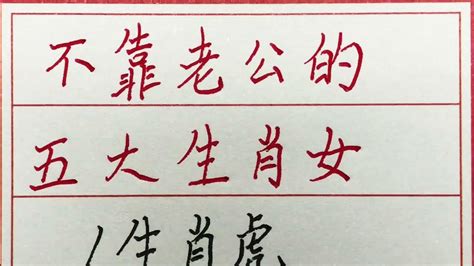 不靠老公的
五大生肖女
1生肖虎